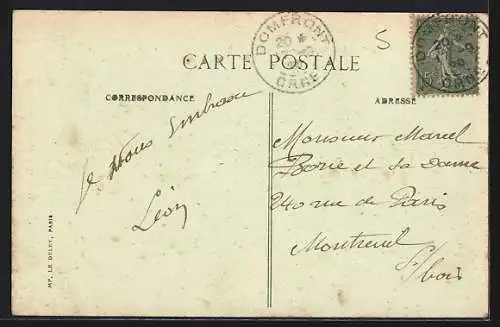 DOMFRONT
ORNE
5
CARTE POSTALE
CORRESPONDANCE
ADRESSE
Je vous embrasse
Léon
Monsieur Marcel
Borie et sa Dame
240 rue de Paris
Montreuil
s/bois
MP. LE DELEY, PARIS